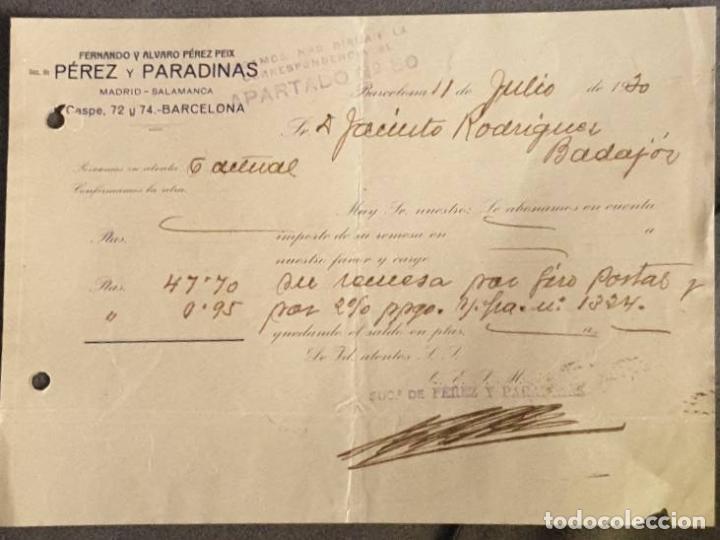 FERNANDO Y ALVARO PÉREZ PEIX
Suc. de PÉREZ Y PARADINAS
MADRID - SALAMANCA
Caspe, 72 y 74.-BARCELONA
DIRIJAN LA
CORRESPONDENCIA AL
APARTADO Nº 80
Barcelona 11 de Julio de 1930
Sr. D Jacinto Rodriguez
Badajóz
su atenta 6 actual
Confirmamos la ntra.
Muy Sr. nuestro: Le abonamos en cuenta
Ptas. importe de su remesa en a
nuestro favor y cargo
Ptas. 47'70 su remesa por giro postal y
" 0'95 por 2% ppgo. s/fra. nº 1324.
quedando el saldo en ptas. a
De Vd. atentos S. S.
Q. E. S. M.
SUC.ˢ DE PÉREZ Y PARADINAS
todocoleccion.net